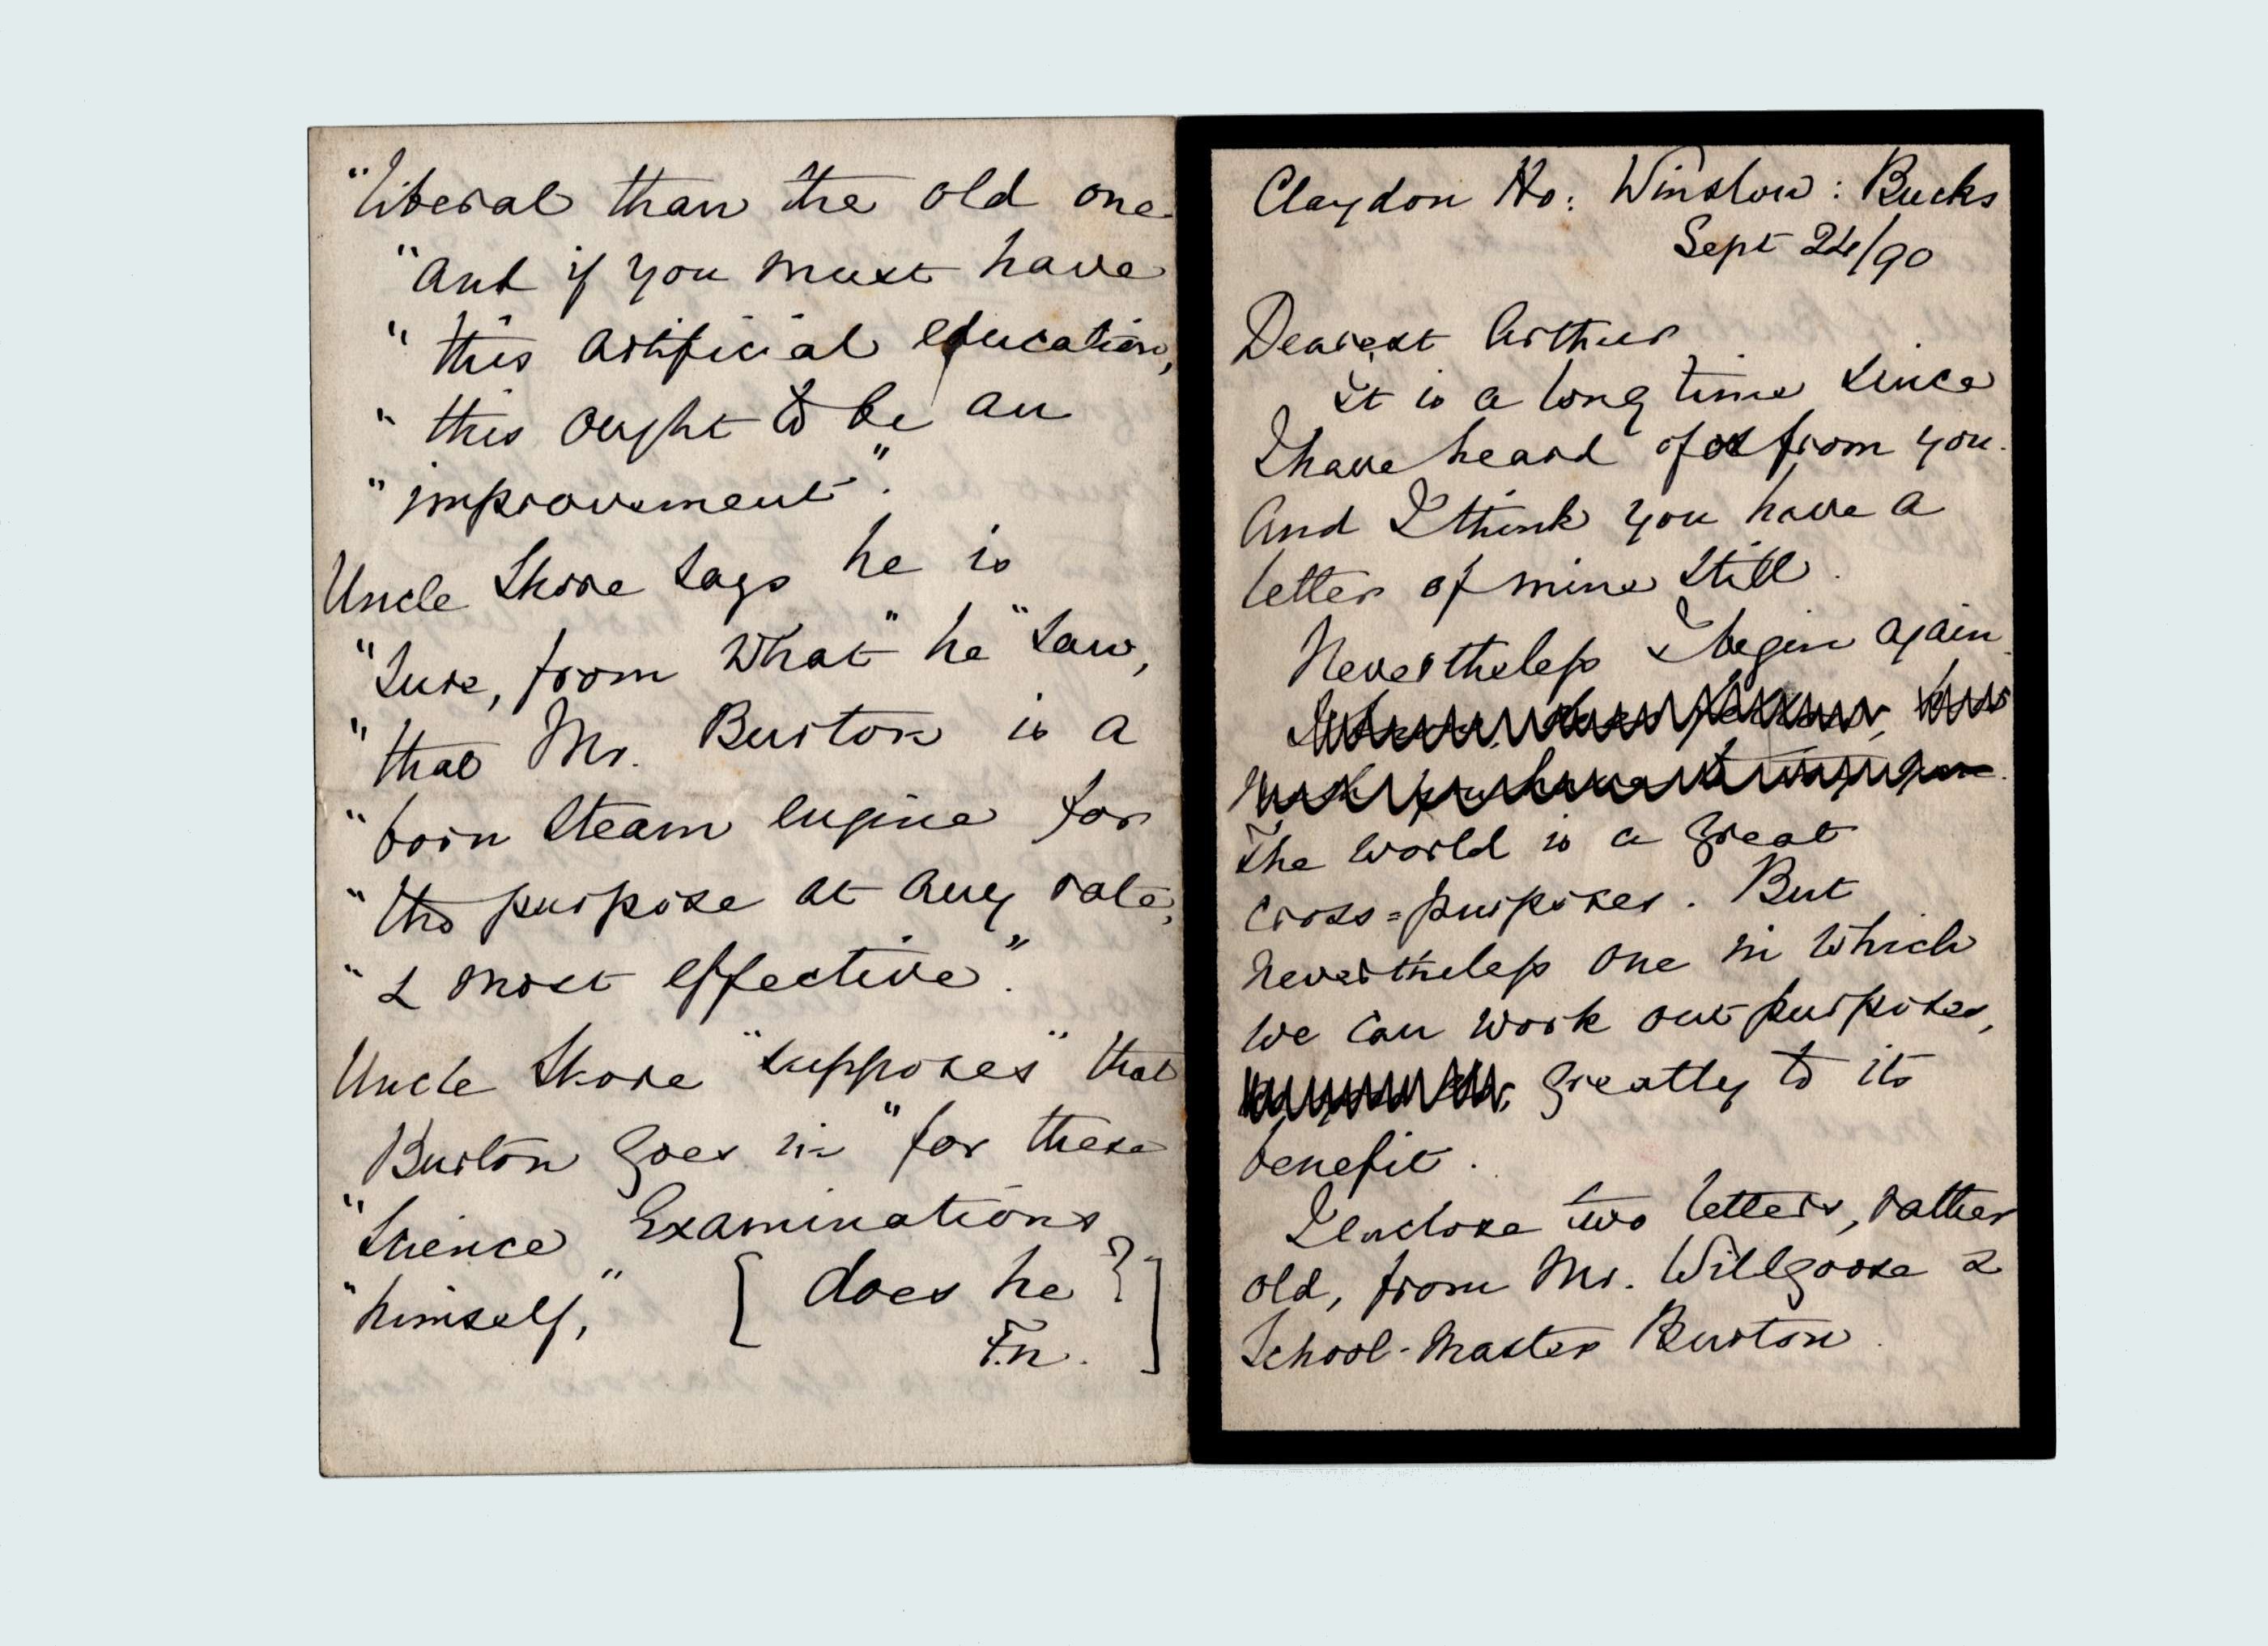 "liberal than the old one
"And if you must have
"this artificial education,
"this ought to be an
"improvement".
Uncle Shore says he is
"sure, from what" he "saw,
"that Mr. Burton is a
"born steam engine for
"the purpose at any rate,
"& most effective."
Uncle Shore "supposes" that
Burton goes in "for these
"Science Examinations
"himself," [does he?
F.N.]
Claydon Ho: Winslow: Bucks
Sept 24/90
Dearest Arthur
It is a long time since
I have heard of or from you.
And I think you have a
letter of mine still.
Nevertheless I begin again.
The world is a great
cross=purposes. But
nevertheless one in which
we can work out purposes,
greatly to its
benefit.
I enclose two letters, rather
old, from Mr. Willgoose &
School-Master Burton.